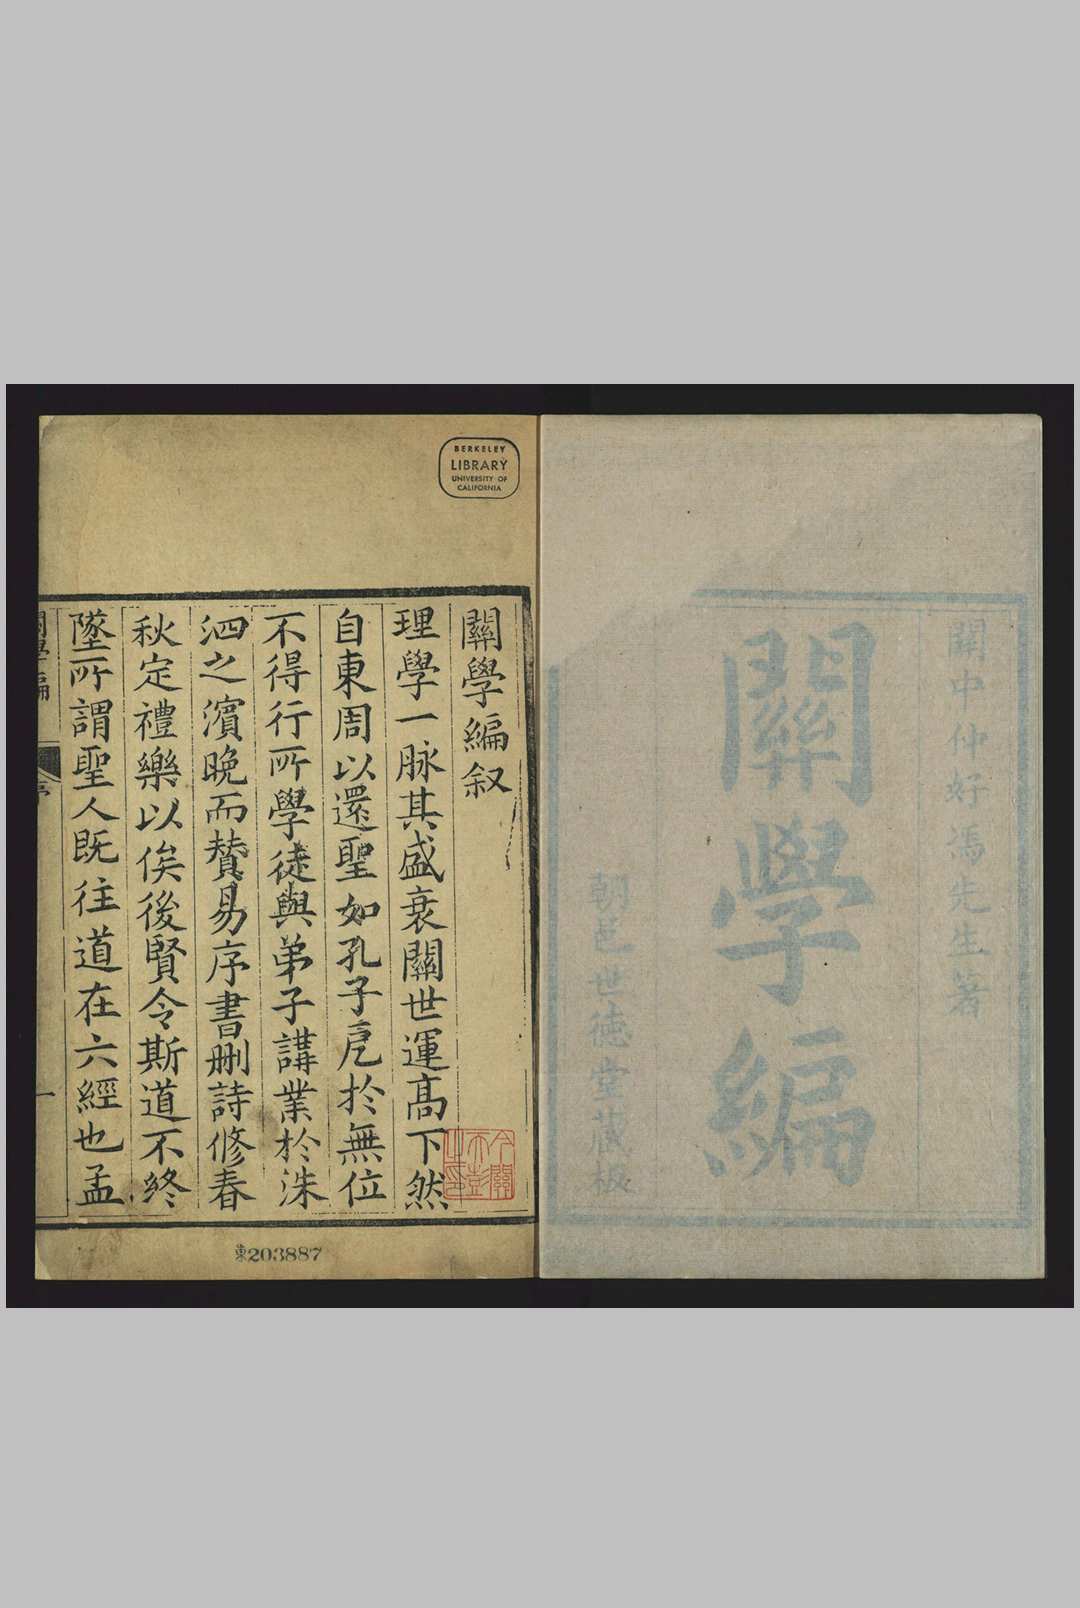 關中仲好馮先生著
關學編
朝邑世德堂藏板
BERKELEY
LIBRARY
UNIVERSITY OF
CALIFORNIA
關學編叙
理學一脉其盛衰關世運髙下然
自東周以還聖如孔子戹於無位
不得行所學徒與弟子講業於洙
泗之濵晚而賛易序書删詩修春
秋定禮樂以俟後賢令斯道不終
墜所謂聖人既往道在六經也孟
關學編
序
一
今關
天彭
之印
東203887